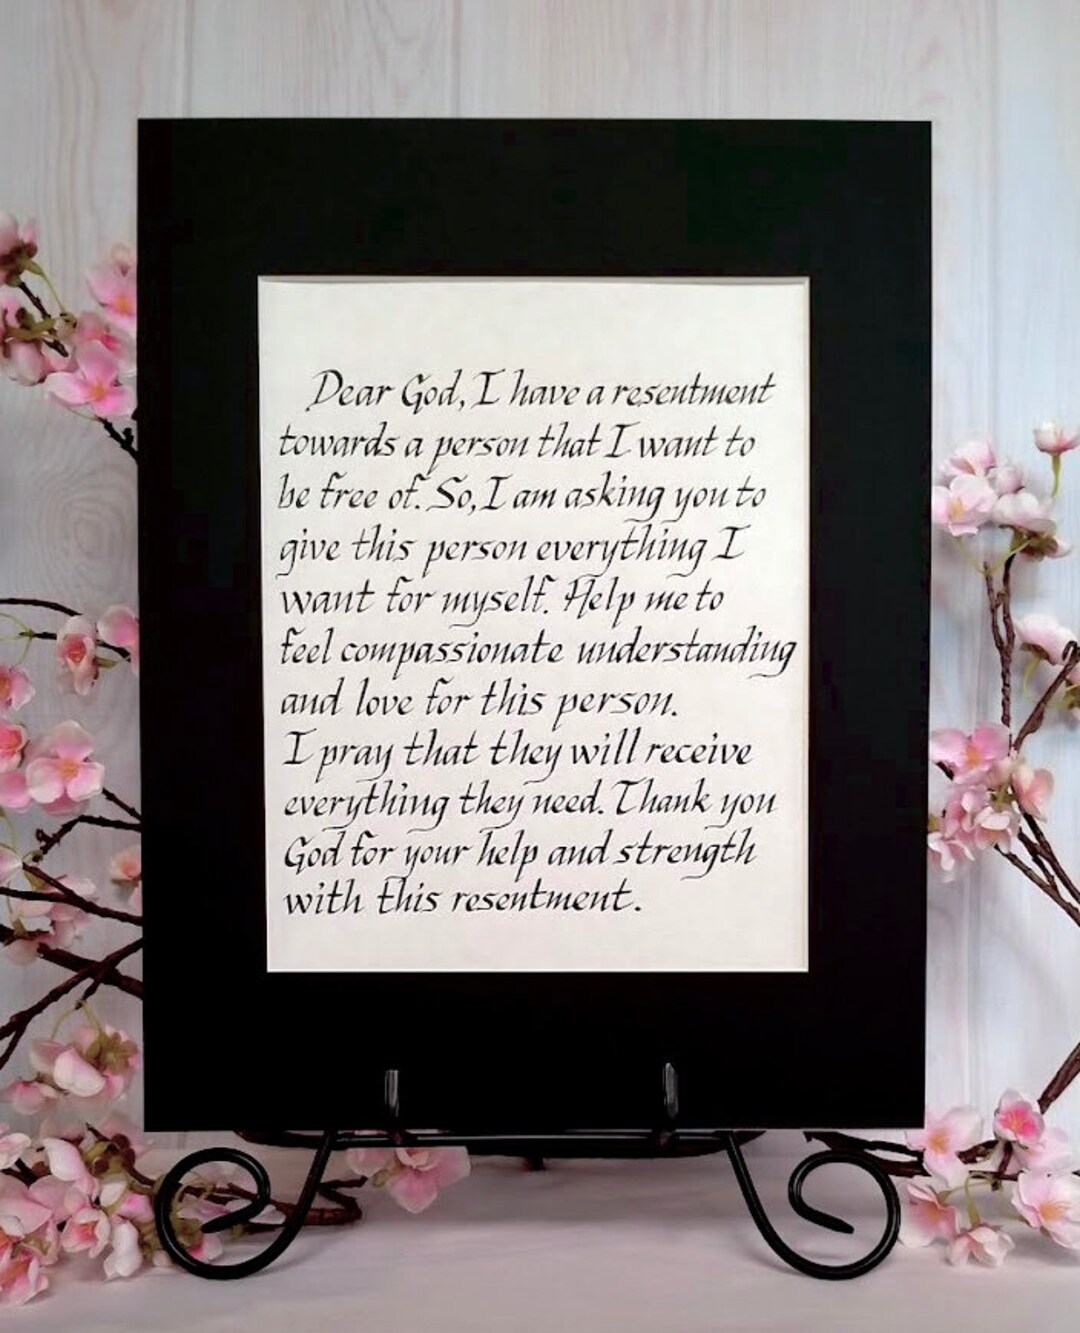 Dear God, I have a resentment
towards a person that I want to
be free of. So, I am asking you to
give this person everything I
want for myself. Help me to
feel compassionate understanding
and love for this person.
I pray that they will receive
everything they need. Thank you
God for your help and strength
with this resentment.